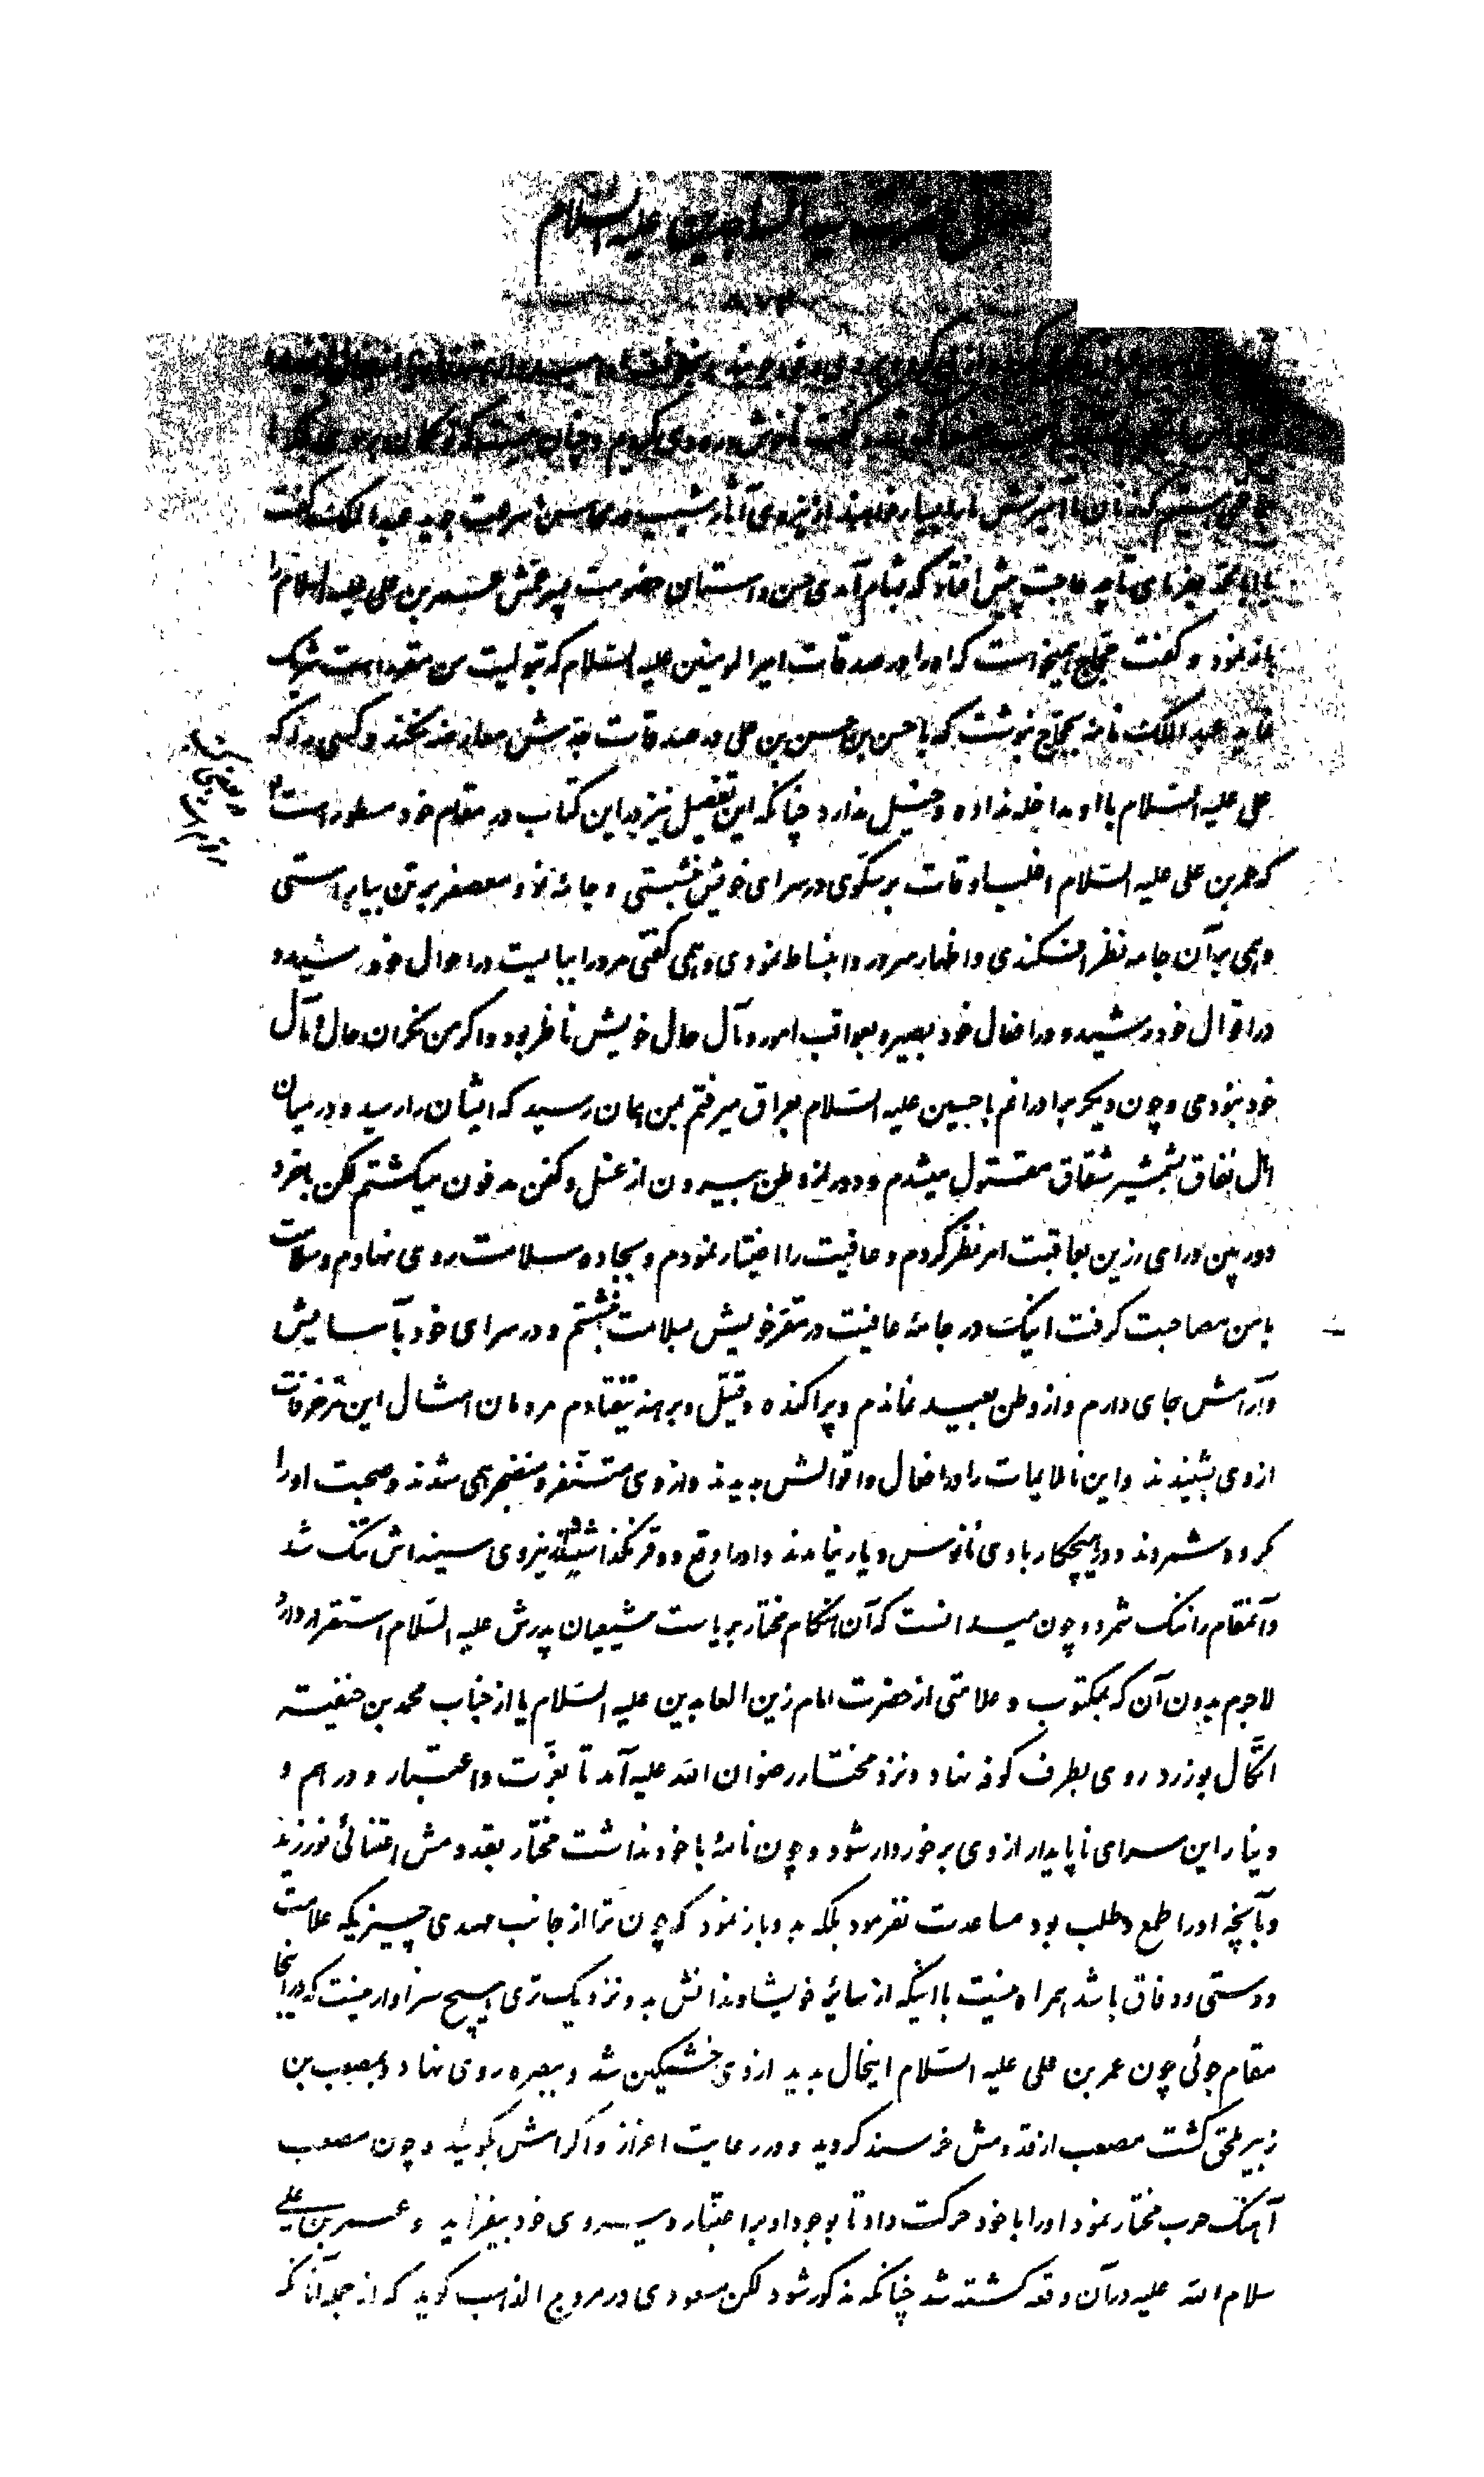 احوال حضرت سید الساجدین علیه السلام
یا ابا محمد بفرمای تا چه حاجت پیش افتاد که بشام آمدی حسن داستان خصومت پسر عمش عمر بن علی علیه السلام را
باز نمود و گفت حجاج همیخواست که او را در صدقات امیر المومنین علیه السلام که تولیت من مقرر است شریک
نماید عبد الملک نامه بحجاج نوشت که با حسن بن حسن بن علی در صدقات جدش معارضه نکند و کسی را که
علی علیه السلام با او مداخله نداده دخیل ندارد چنانکه این تفصیل نیز در این کتاب در مقام خود مسطور است
که عمر بن علی علیه السلام اغلب اوقات بر سکوی در سرای خویش نشستی و جامهٔ معصفر بر تن بیاراستی
و همی بر آن جامه نظر افکندی و اظهار سرور و انبساط نمودی و همی گفتی مرد را ببایست در احوال خود رشید و
در اقوال خود رشید و در افعال خود بصیر و بعواقب امور و مآل حال خویش ناظر بود و اگر من نگران حال و مآل
خود نبودمی و چون دیگر برادرانم با حسین علیه السلام بعراق میرفتم بمن همان رسید که ایشان را رسید و در میان
اهل نفاق بشمشیر شقاق مقتول میشدم و دور از وطن بیرون از غسل و کفن مدفون میگشتم لکن با خرد
دوربین و رای رزین بعاقبت امر نظر کردم و عافیت را اختیار نمودم و بجاده سلامت روی نهادم و سلامت
با من مصاحبت گرفت اینک در جامهٔ عافیت در مقر خویش بسلامت بنشستم و در سرای خود بآسایش
و آرامش جای دارم و از وطن بعید نماندم و پراکنده و قتیل و برهنه نیفتادم مردمان امثال این مزخرفات
از وی بشنیدند و این ناملایمات را در افعال و اقوالش بدیدند و از وی متنفر و منضجر همی شدند و صحبت او را
مکروه شمردند و در هیچکار با وی مأنوس و یار نیامدند و او را وقع و وقر نگذاشتند نیروی سینه‌اش تنگ شد
و آنمقام را ننگ شمرد و چون میدانست که آن هنگام مختار بریاست شیعیان پدرش علیه السلام استقرار دارد
لاجرم بدون آن که بمکتوب و علامتی از حضرت امام زین العابدین علیه السلام یا از جناب محمد بن حنفیه
اتکال بورزد روی بطرف کوفه نهاد و نزد مختار رضوان الله علیه آمد تا بعزت و اعتبار و درهم و
دینار این سرای ناپایدار از وی برخوردار شود و چون نامهٔ با خود نداشت مختار بقدومش اعتنائی نورزید
و بآنچه او را طمع و طلب بود مساعدت نفرمود بلکه بدو باز نمود که چون ترا از جانب مهدی چیزیکه علامت
دوستی و وفاق باشد همراه نیست با اینکه از سایر خویشاوندانش بدو نزدیک تری هیچ سزاوار نیست که در اینجا
مقام جوئی چون عمر بن علی علیه السلام اینحال بدید از وی خشمگین شد و ببصره روی نهاد و بمصعب بن
زبیر ملحق گشت مصعب از قدومش خرسند گردید و در رعایت اعزاز و اکرامش بکوشید و چون مصعب
آهنگ حرب مختار نمود او را با خود حرکت داد تا بوجود او بر اعتبار و نیروی خود بیفزاید و عمر بن علی
سلام الله علیه در آن وقعه کشته شد چنانکه مذکور شود لکن مسعودی در مروج الذهب گوید که از جمله آنانکه